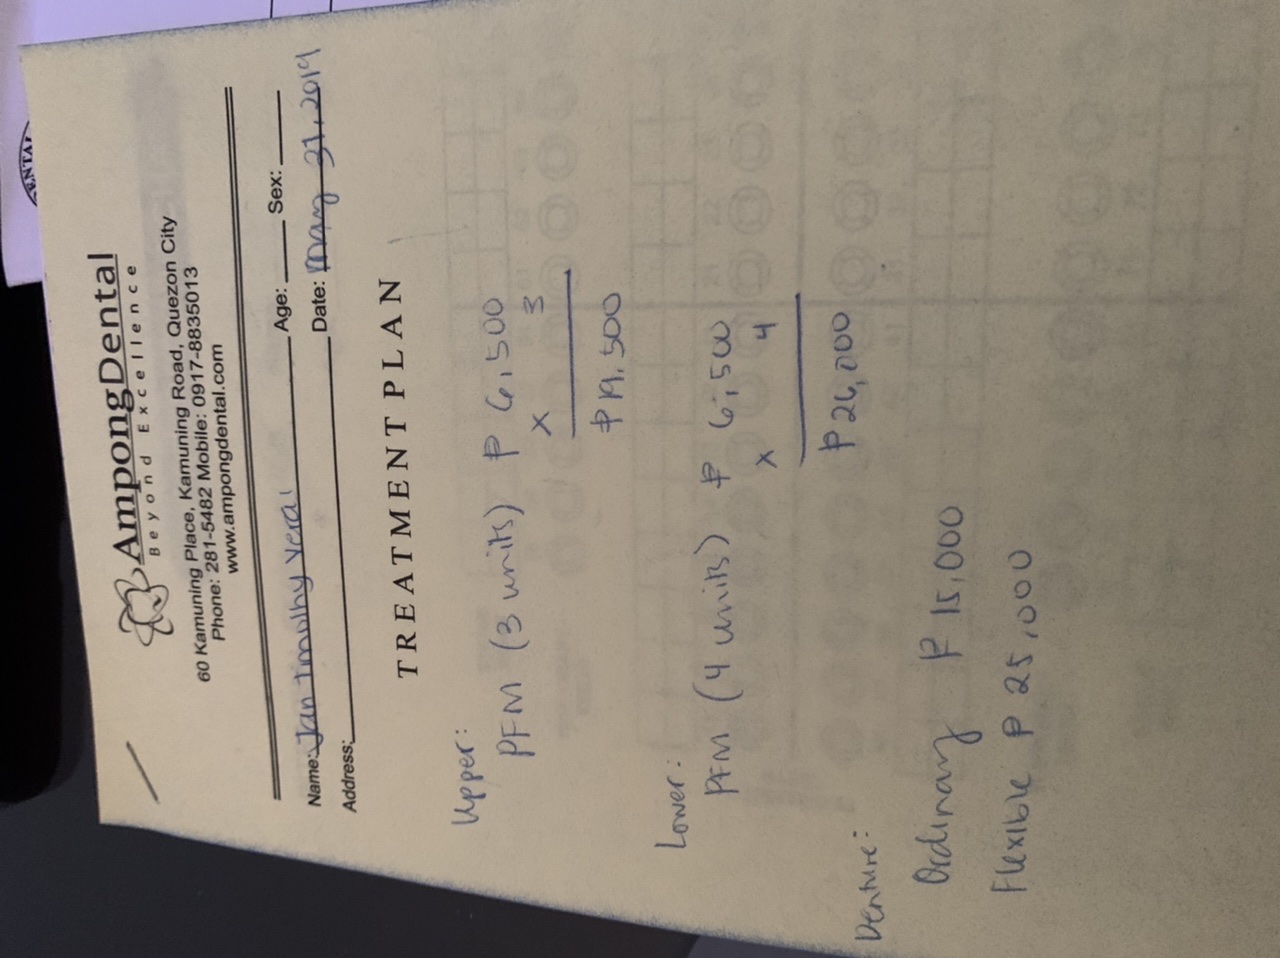 AmpongDental
Beyond Excellence
60 Kamuning Place, Kamuning Road, Quezon City
Phone: 281-5482 Mobile: 0917-8835013
www.ampongdental.com
Name: Jan Timothy Vera Age: Sex:
Address: Date: May 31, 2019
TREATMENT PLAN
Upper:
PFM (3 units) ₱ 6,500
x 3
₱19,500
Lower:
PFM (4 units) ₱ 6,500
x 4
₱26,000
Denture:
Ordinary ₱ 15,000
Flexible ₱ 25,000